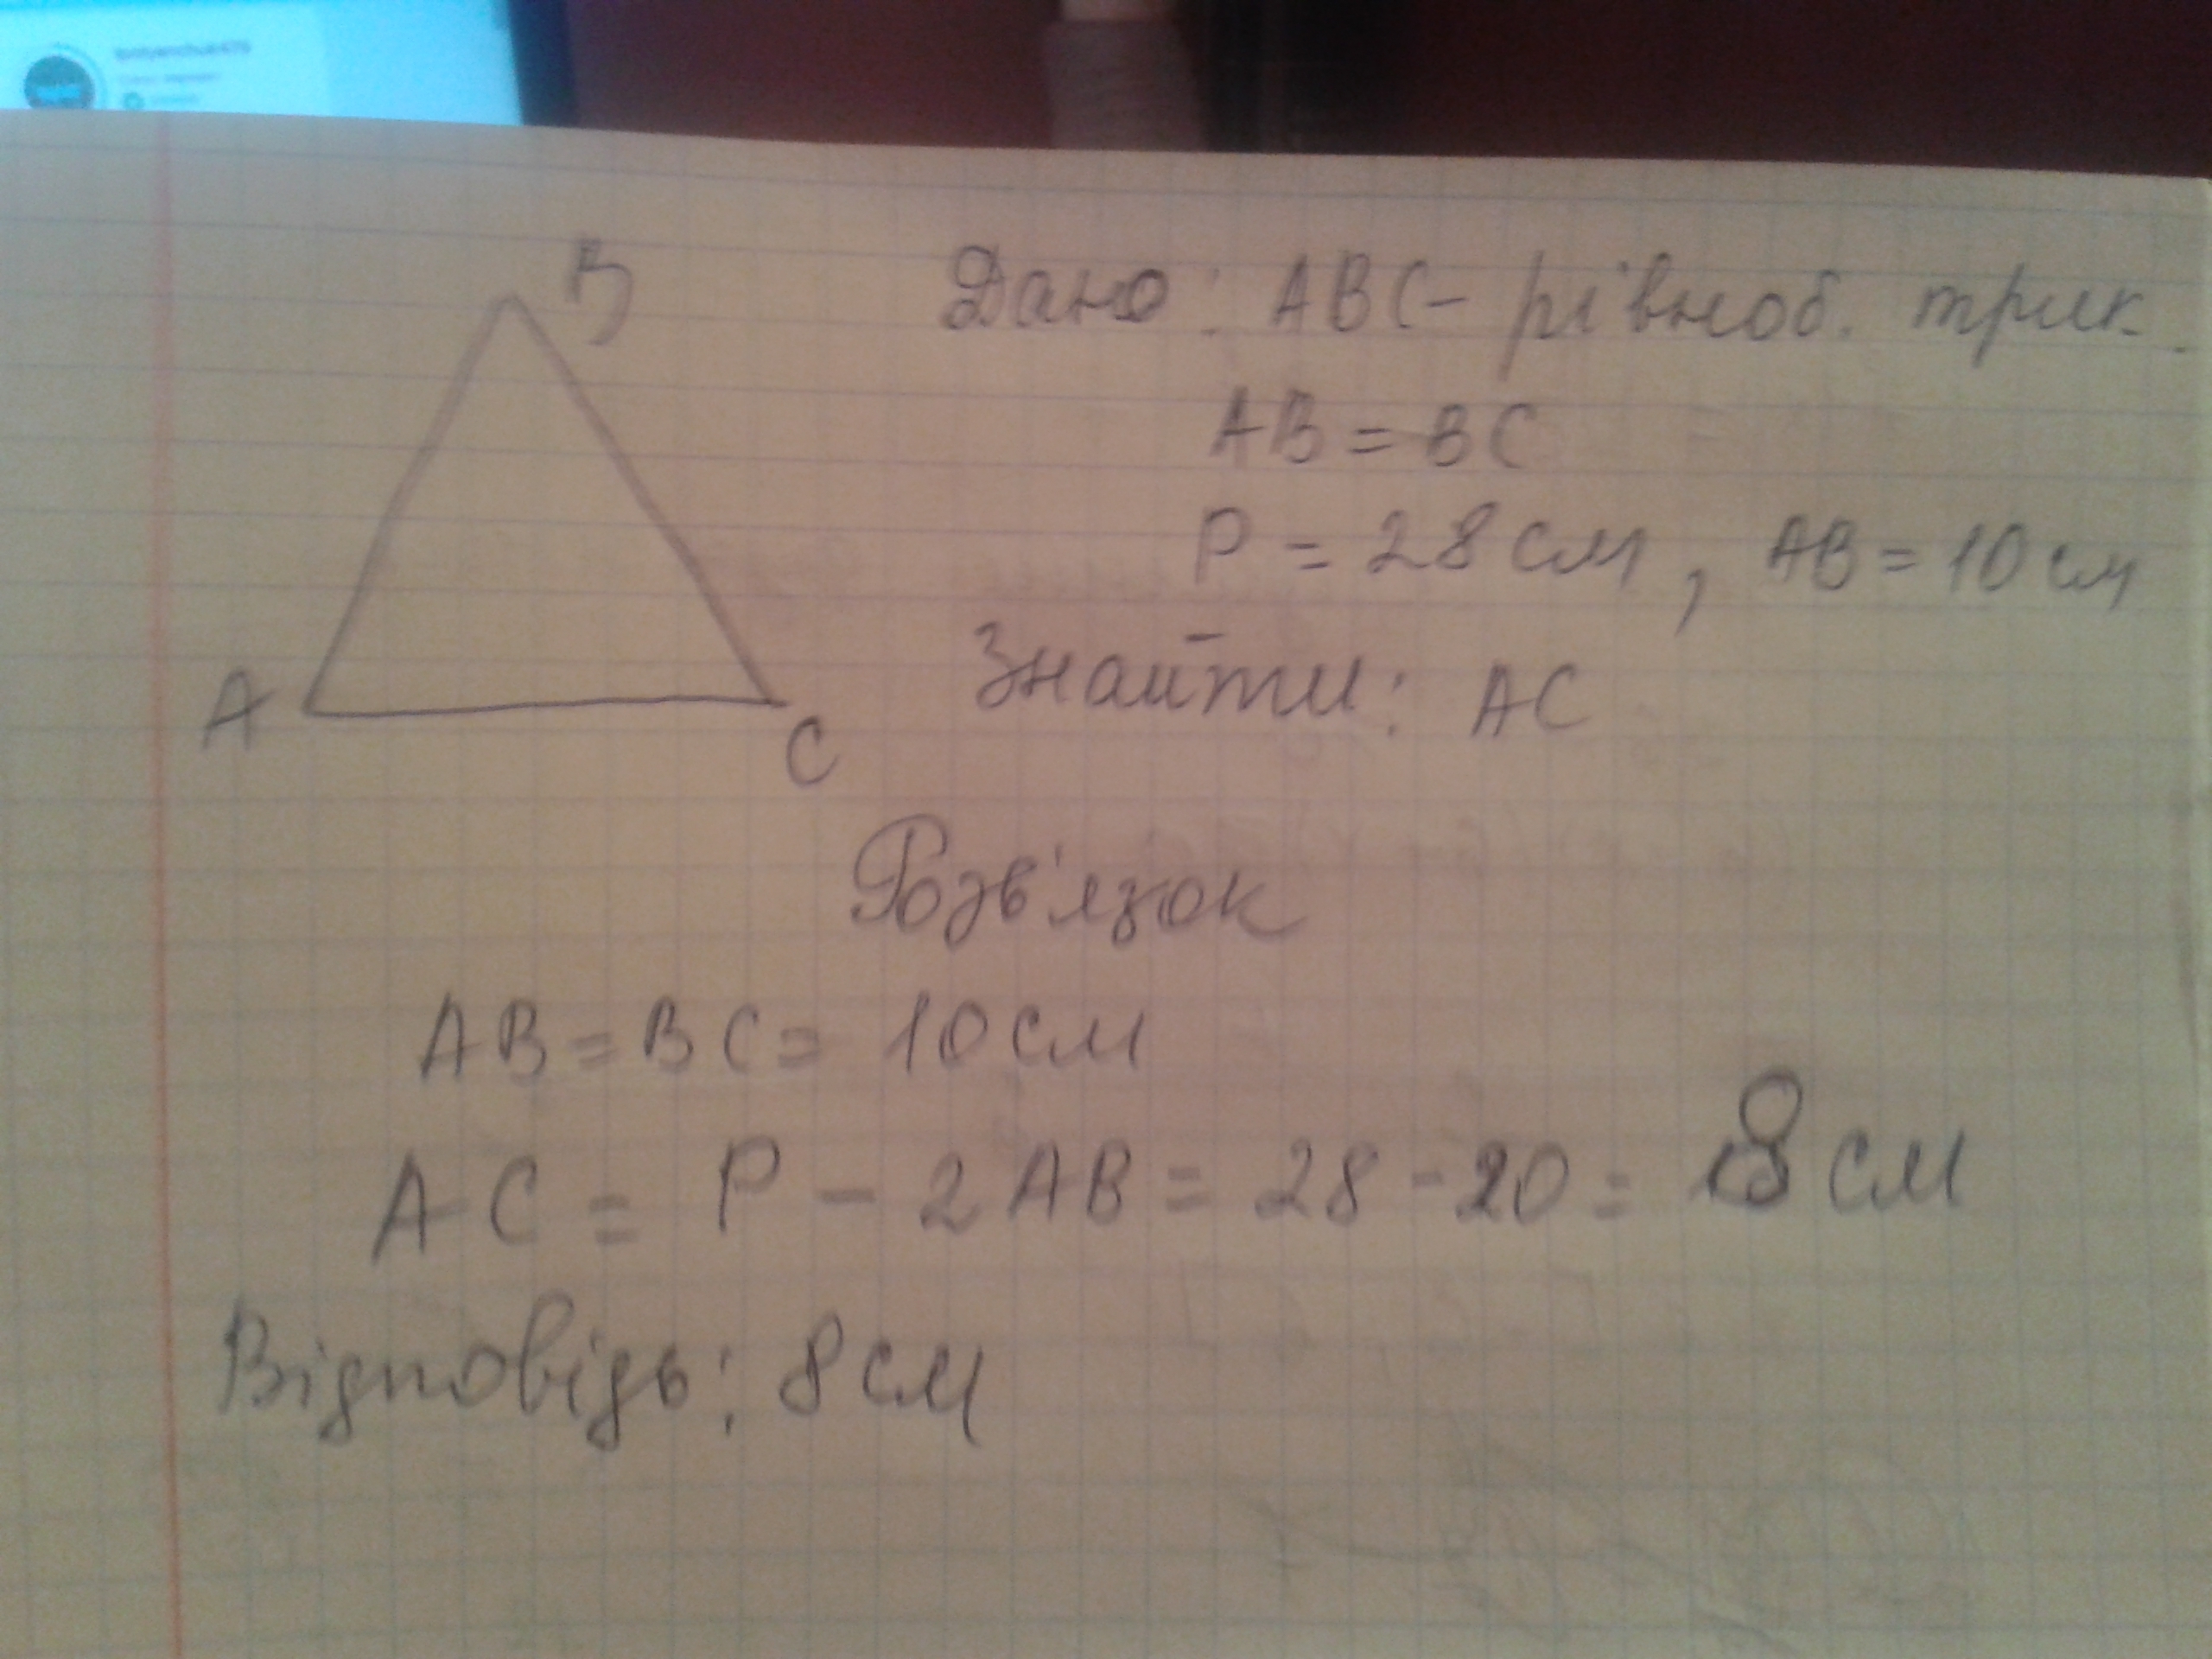 B
Дано: ABC - рівноб. трик.
AB = BC
P = 28 см, AB = 10 см
A
C
Знайти: AC
Розв'язок
AB = BC = 10 см
AC = P - 2AB = 28 - 20 = 8 см
Відповідь: 8 см